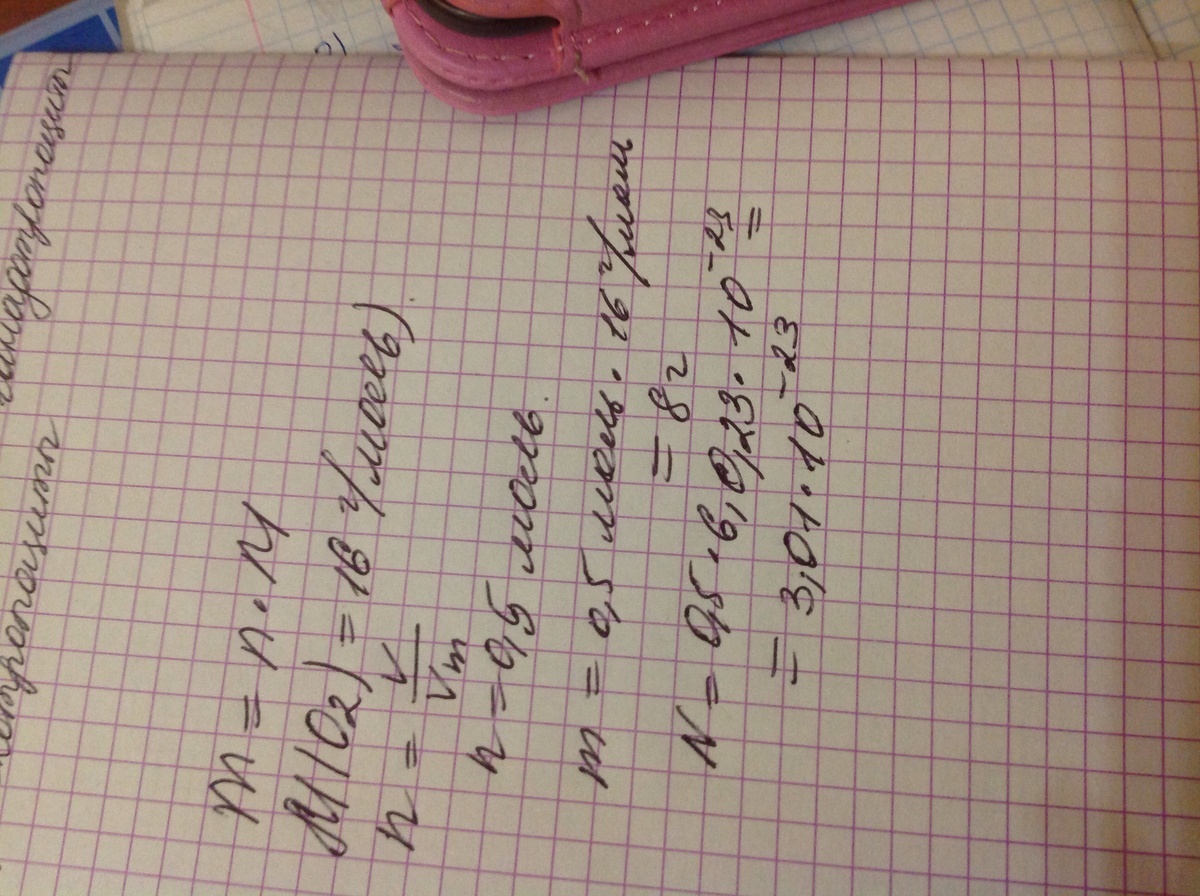 m = n · M
M(O₂) = 16 г/моль)
n = V/Vm
n = 0,5 моль.
m = 0,5 моль · 16 г/моль
= 8 г
N = 0,5 · 6,0,23 · 10⁻²³ =
= 3,01 · 10⁻²³